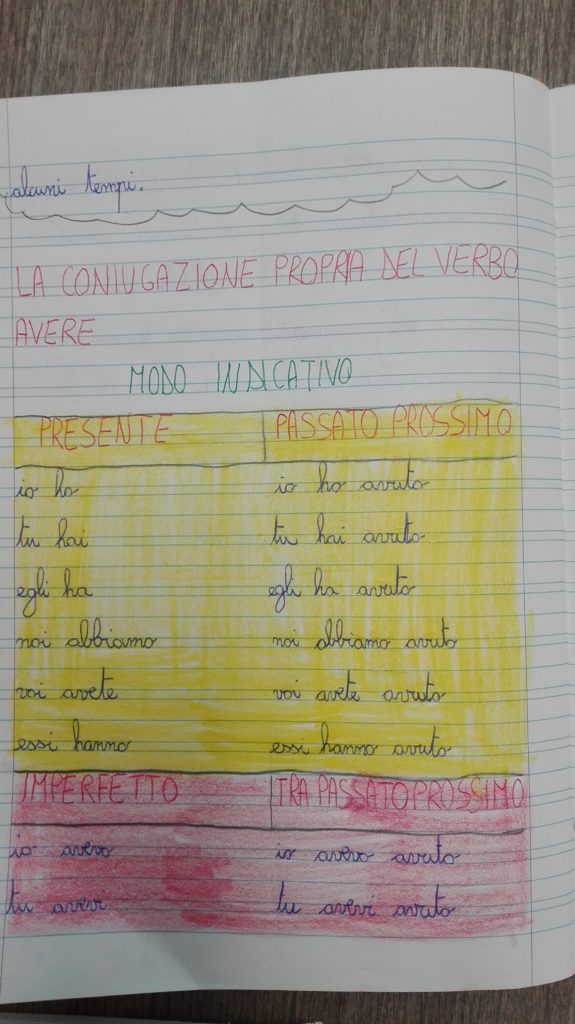 alcuni tempi.
LA CONIUGAZIONE PROPRIA DEL VERBO
AVERE
MODO INDICATIVO
PRESENTE PASSATO PROSSIMO
io ho io ho avuto
tu hai tu hai avuto
egli ha egli ha avuto
noi abbiamo noi abbiamo avuto
voi avete voi avete avuto
essi hanno essi hanno avuto
IMPERFETTO TRAPASSATO PROSSIMO
io avevo io avevo avuto
tu avevi tu avevi avuto